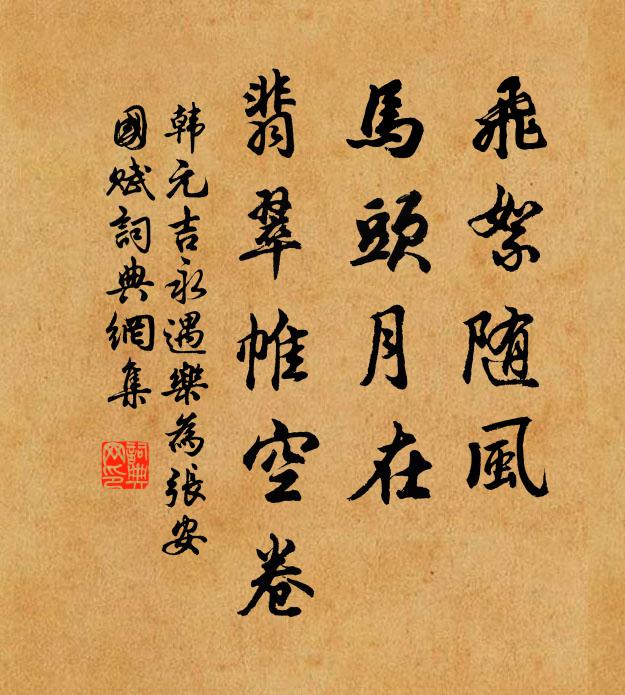 飛絮随風
馬頭月在
翡翠帷空卷
韩元吉永遇樂為張安
國賦詞典網集
詞典
网印